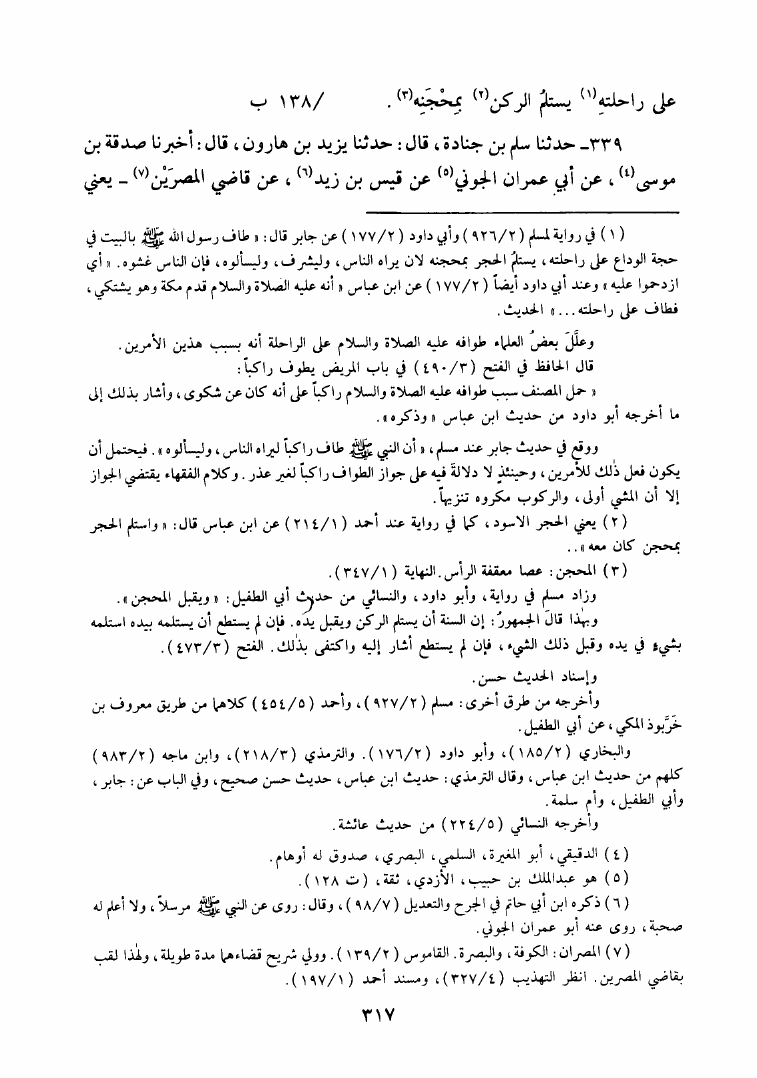 على راحلتهِ(١) يستلمُ الركن(٢) بِمِحْجَنِه(٣) . /١٣٨ ب
٣٣٩ـ حدثنا سلم بن جنادة، قال: حدثنا يزيد بن هارون، قال: أخبرنا صدقة بن
موسى(٤)، عن أبي عمران الجوني(٥) عن قيس بن زيد(٦)، عن قاضي المصرَيْن(٧) ـ يعني
(١) في رواية لمسلم (٩٢٦/٢) وأبي داود (١٧٧/٢) عن جابر قال: « طاف رسول الله ﷺ بالبيت في
حجة الوداع على راحلته، يستلمُ الحجر بمحجنه لان يراه الناس، وليشرف، وليسألوه، فإن الناس غشوه. « أي
ازدحموا عليه » وعند أبي داود أيضاً (١٧٧/٢) عن ابن عباس « أنه عليه الصلاة والسلام قدم مكة وهو يشتكي،
فطاف على راحلته ... » الحديث.
وعلَّلَ بعضُ العلماء طوافه عليه الصلاة والسلام على الراحلة أنه بسبب هذين الأمرين.
قال الحافظ في الفتح (٤٩٠/٣) في باب المريض يطوف راكباً:
« حمل المصنف سبب طوافه عليه الصلاة والسلام راكباً على أنه كان عن شكوى، وأشار بذلك إلى
ما أخرجه أبو داود من حديث ابن عباس « وذكره ».
ووقع في حديث جابر عند مسلم، « أن النبي ﷺ طاف راكباً ليراه الناس، وليسألوه ». فيحتمل أن
يكون فعل ذلك للأمرين، وحينئذٍ لا دلالةَ فيه على جواز الطواف راكباً لغير عذر. وكلام الفقهاء يقتضي الجواز
إلا أن المشي أولى، والركوب مكروه تنزيهاً.
(٢) يعني الحجر الاسود، كما في رواية عند أحمد (٢١٤/١) عن ابن عباس قال: « واستلم الحجر
بمحجن كان معه »..
(٣) المحجن: عصا معقفة الرأس. النهاية (٣٤٧/١).
وزاد مسلم في رواية، وأبو داود، والنسائي من حديث أبي الطفيل: « ويقبل المحجن ».
وبهٰذا قالَ الجمهورُ: إن السنة أن يستلم الركن ويقبل يده. فإن لم يستطع أن يستلمه بيده استلمه
بشيءٍ في يده وقبل ذلك الشيء، فإن لم يستطع أشار إليه واكتفى بذلك. الفتح (٤٧٣/٣).
وإسناد الحديث حسن.
وأخرجه من طرق أخرى: مسلم (٩٢٧/٢)، وأحمد (٤٥٤/٥) كلاهما من طريق معروف بن
خَرَّبوذ المكي، عن أبي الطفيل.
والبخاري (١٨٥/٢)، وأبو داود (١٧٦/٢). والترمذي (٢١٨/٣)، وابن ماجه (٩٨٣/٢)
كلهم من حديث ابن عباس، وقال الترمذي: حديث ابن عباس، حديث حسن صحيح، وفي الباب عن: جابر،
وأبي الطفيل، وأم سلمة.
وأخرجه النسائي (٢٢٤/٥) من حديث عائشة.
(٤) الدقيقي، أبو المغيرة، السلمي، البصري، صدوق له أوهام.
(٥) هو عبدالملك بن حبيب، الأزدي، ثقة، (ت ١٢٨).
(٦) ذكره ابن أبي حاتم في الجرح والتعديل (٩٨/٧)، وقال: روى عن النبي ﷺ مرسلاً، ولا أعلم له
صحبة، روى عنه أبو عمران الجوني.
(٧) المصران: الكوفة، والبصرة. القاموس (١٣٩/٢). وولي شريح قضاءهما مدة طويلة، ولهٰذا لقب
بقاضي المصرين. انظر التهذيب (٣٢٧/٤)، ومسند أحمد (١٩٧/١).
٣١٧